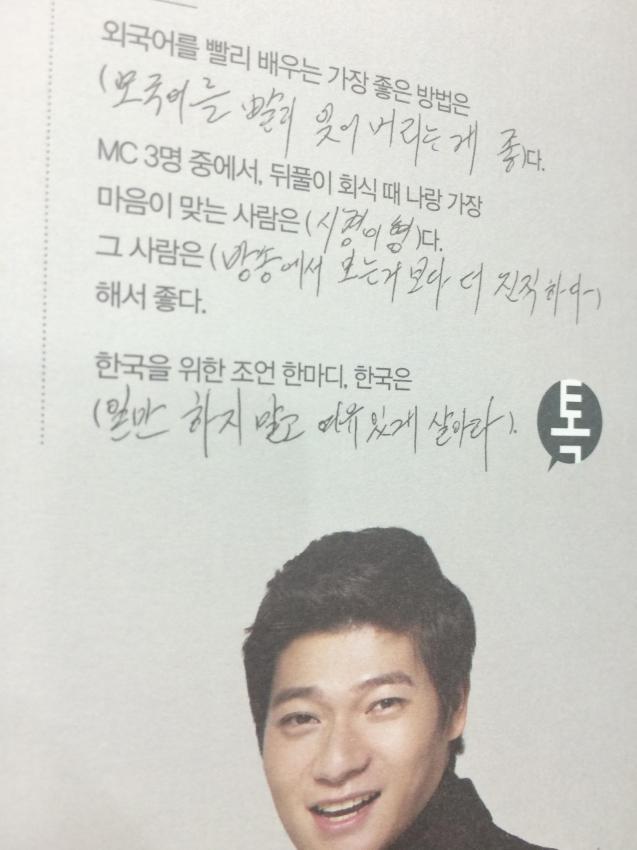 외국어를 빨리 배우는 가장 좋은 방법은
(모국어를 빨리 잊어버리는게 좋)다.
MC 3명 중에서, 뒤풀이 회식 때 나랑 가장
마음이 맞는 사람은 (시경이형)다.
그 사람은 (방송에서 보는거보다 더 진직하다)
해서 좋다.
한국을 위한 조언 한마디, 한국은
(일만 하지 말고 여유있게 살아라).
톡